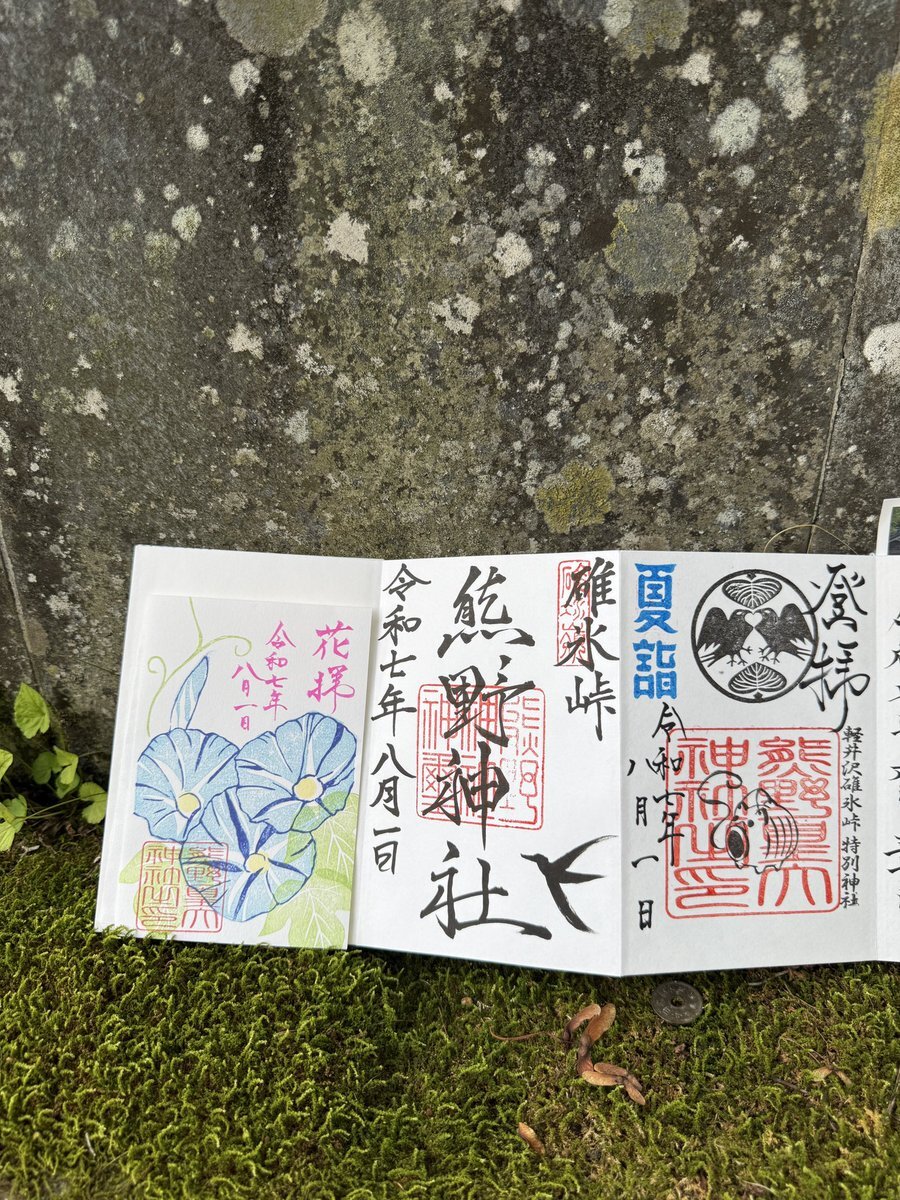 登拝
軽井沢碓氷峠 特別神社
夏詣
令和七年
八月一日
熊野皇大
神社之印
碓氷峠
熊野神社
令和七年八月一日
花拝
令和七年
八月一日
熊野皇大
神社之印